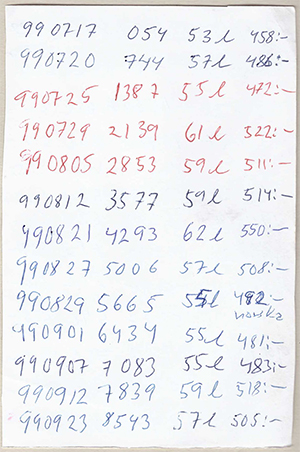 990717 054 53l 458:-
990720 744 57l 486:-
990725 1387 55l 472:-
990729 2139 61l 522:-
990805 2853 59l 511:-
990812 3577 59l 514:-
990821 4293 62l 550:-
990827 5006 57l 508:-
990829 5665 55l 492:-
990901 6434 55l 481:-
990907 7083 55l 483:-
990912 7839 59l 518:-
990923 8543 57l 505:-